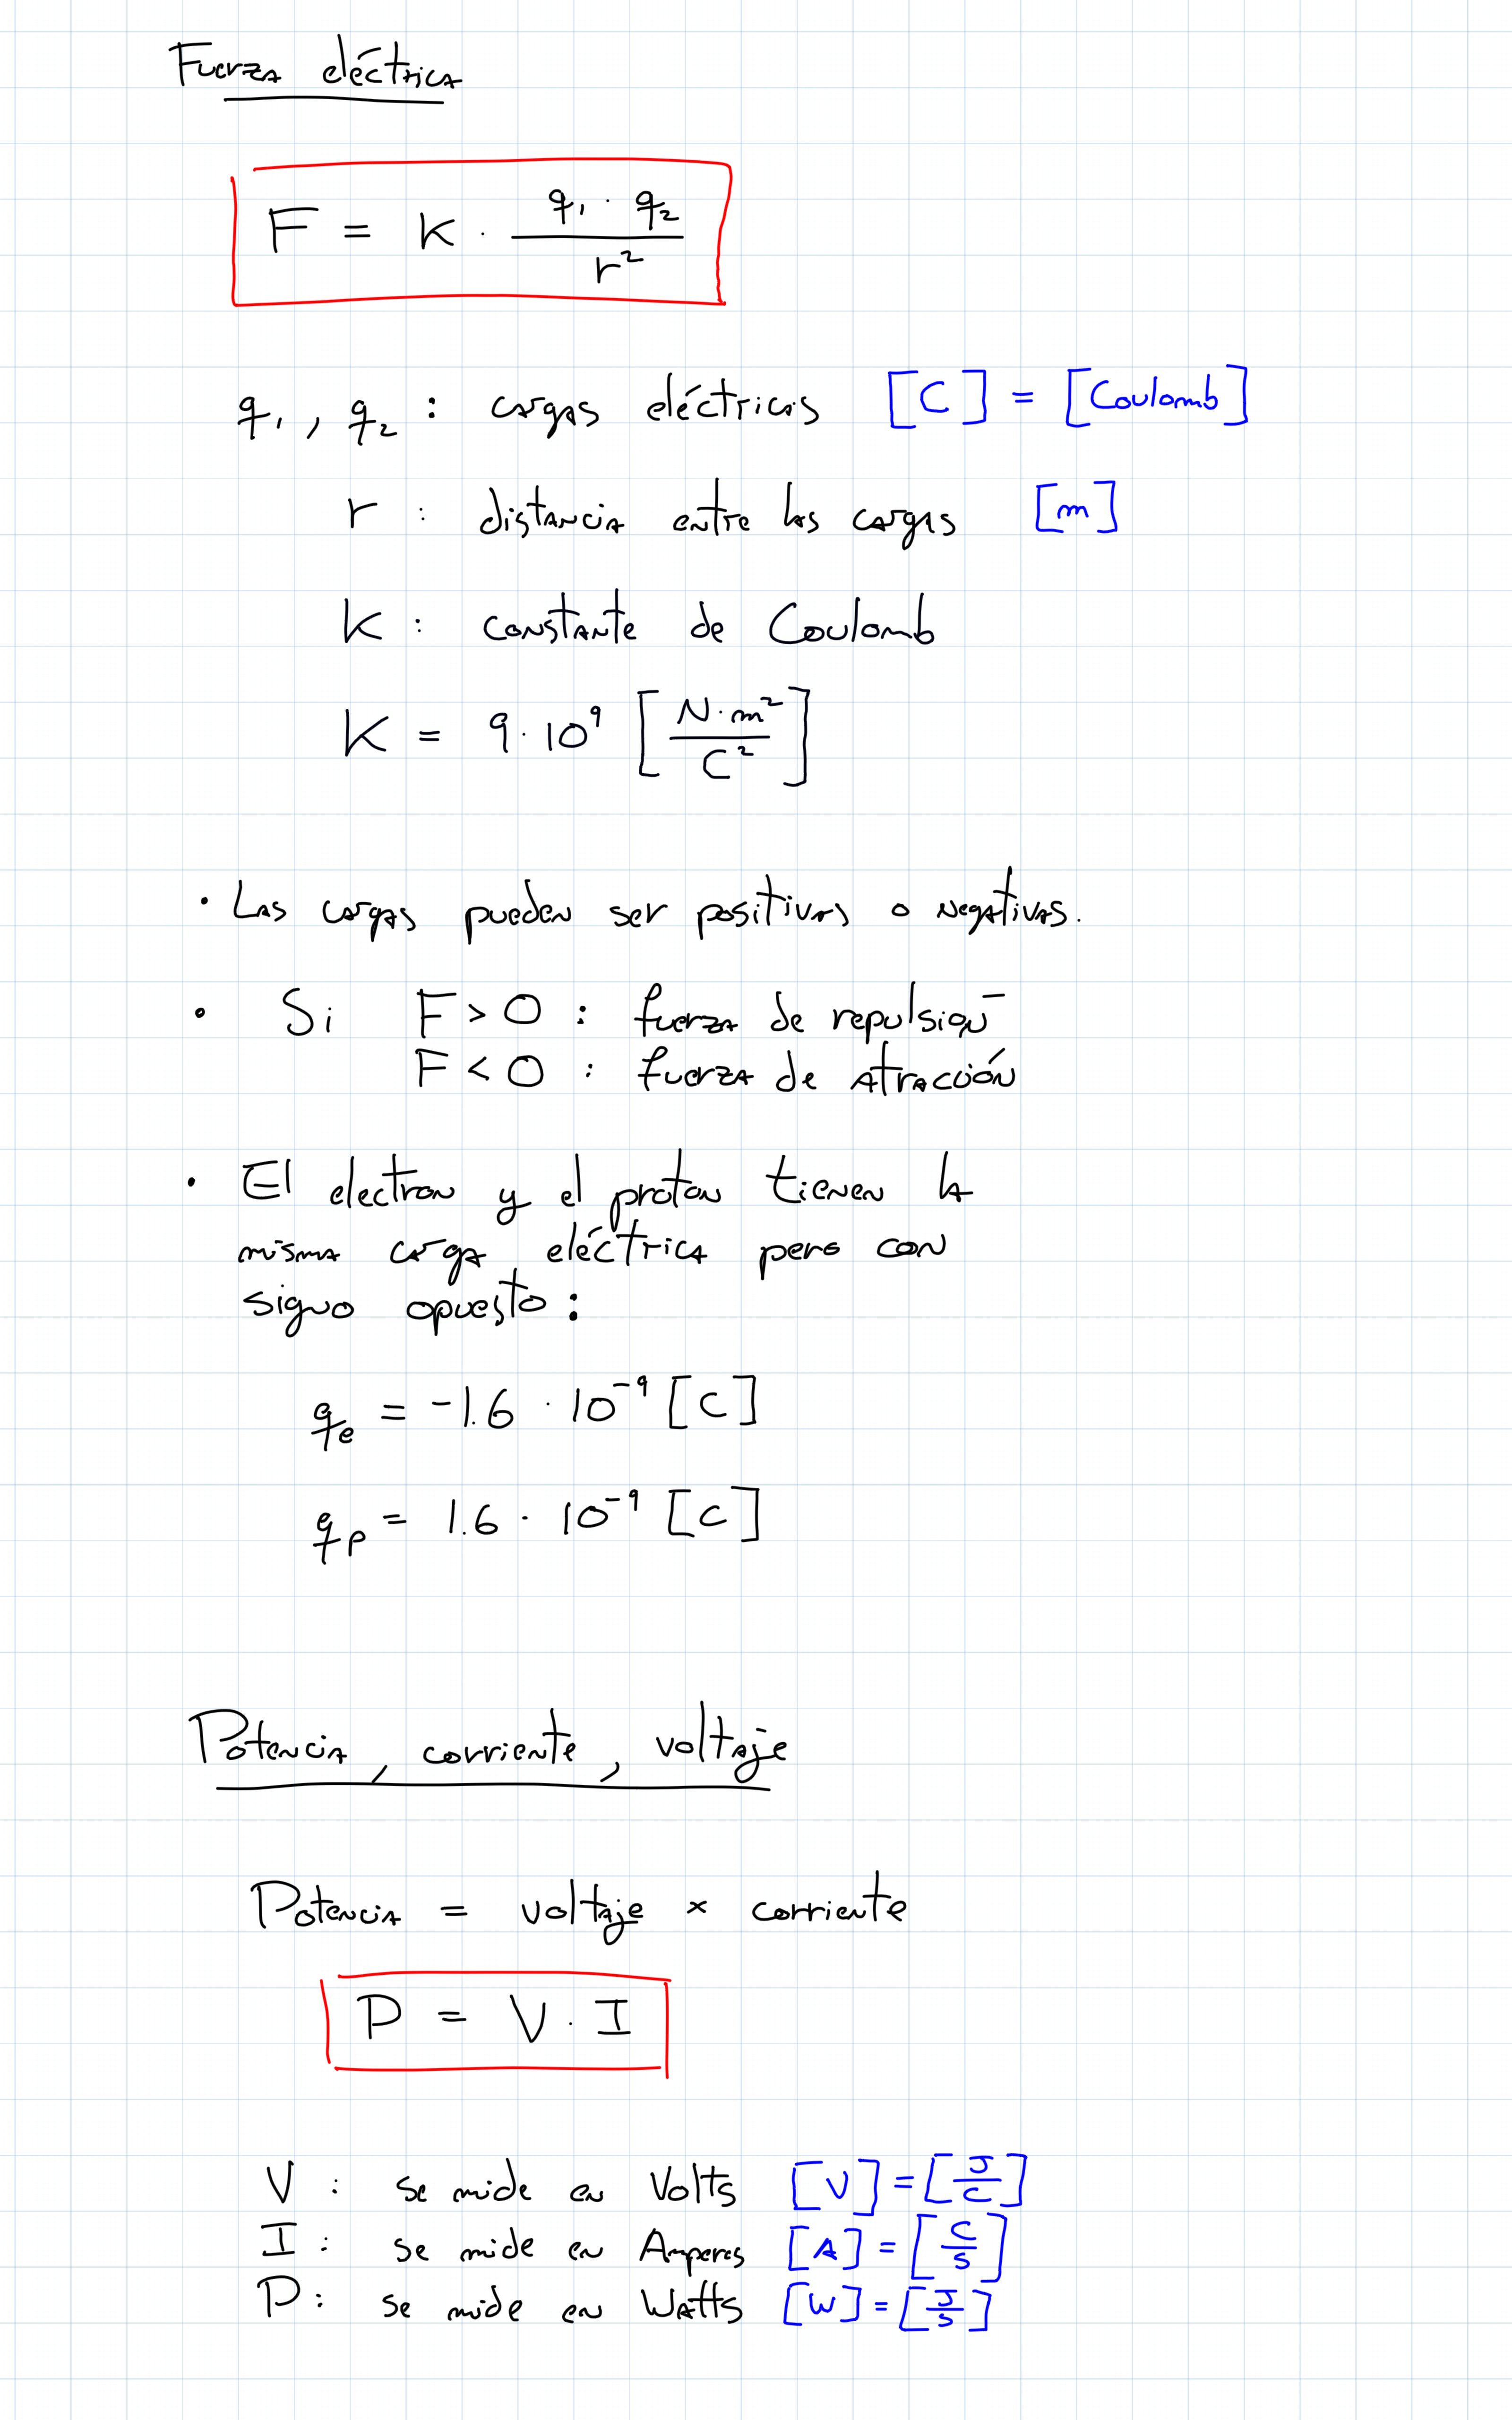 Fuerza eléctrica
F = K · q₁ · q₂ / r²
q₁, q₂ : cargas eléctricas [C] = [Coulomb]
r : distancia entre las cargas [m]
K : constante de Coulomb
K = 9 · 10⁹ [N · m² / C²]
· Las cargas pueden ser positivas o negativas.
· Si F > 0 : fuerza de repulsión
F < 0 : fuerza de atracción
· El electron y el proton tienen la
misma carga eléctrica pero con
signo opuesto :
qₑ = -1.6 · 10⁻⁹ [C]
qₚ = 1.6 · 10⁻⁹ [C]
Potencia, corriente, voltaje
Potencia = voltaje × corriente
P = V · I
V : se mide en Volts [V] = [J/C]
I : se mide en Amperes [A] = [C/s]
P : se mide en Watts [W] = [J/s]